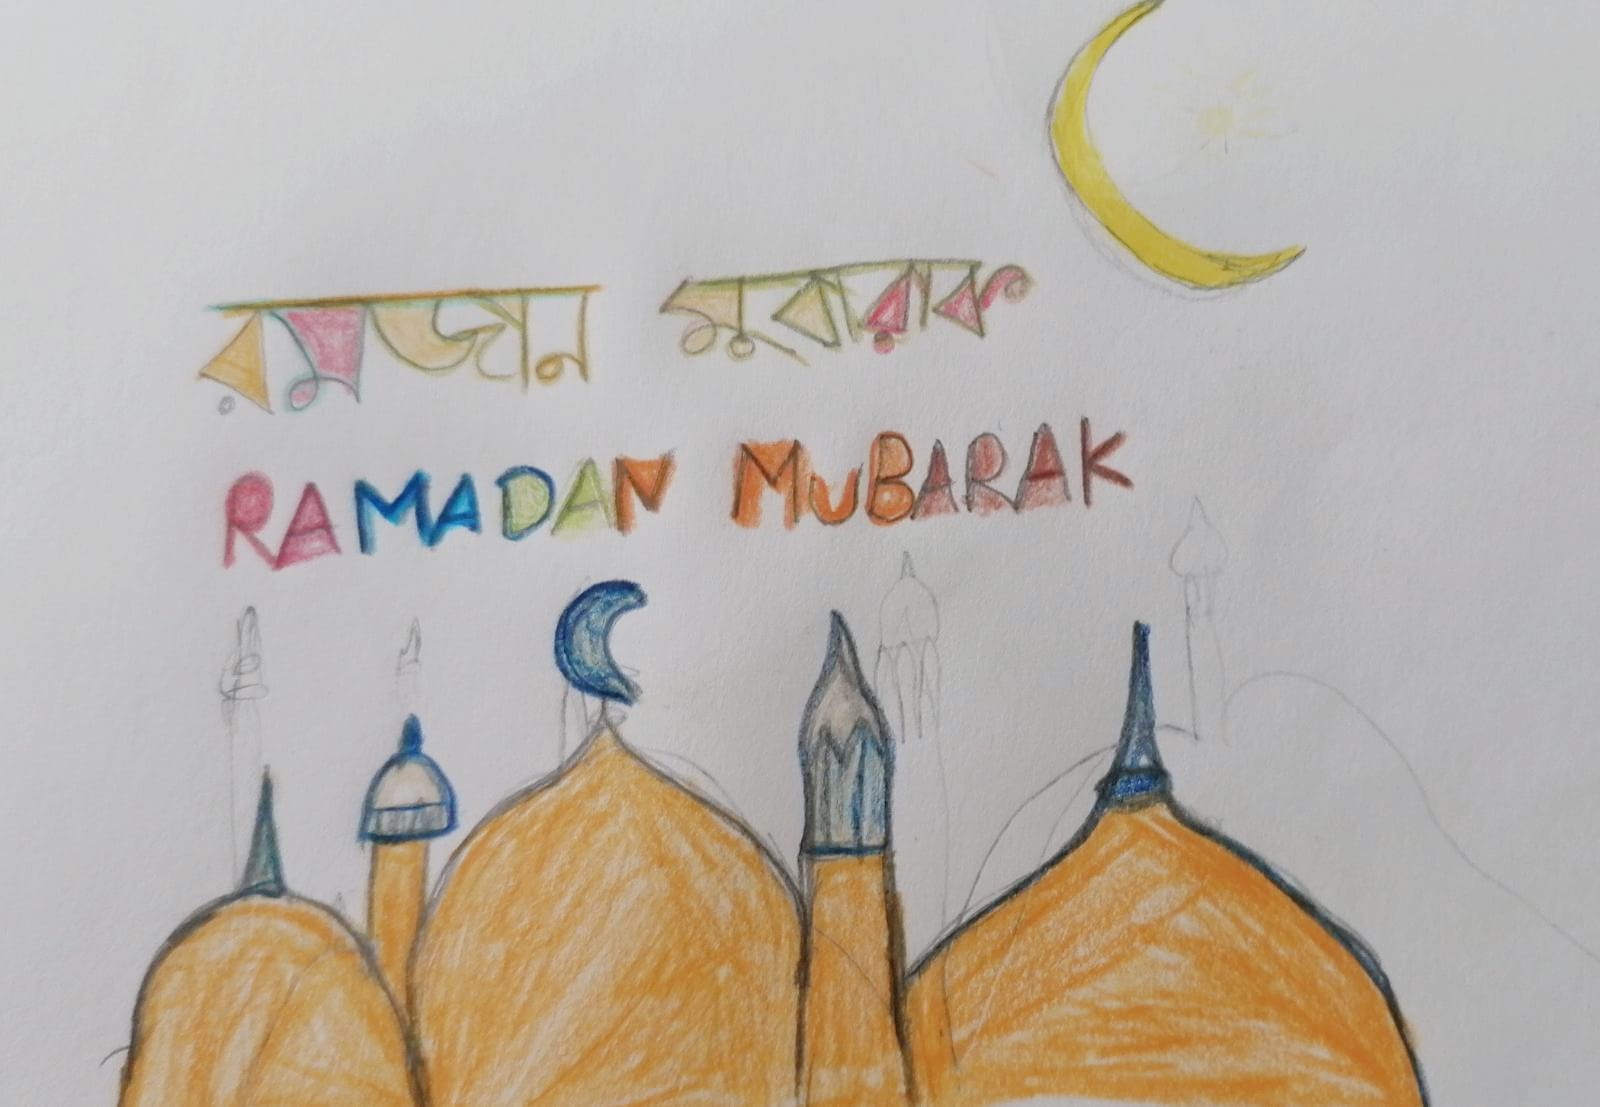 রমজান মুবারাক
RAMADAN MUBARAK